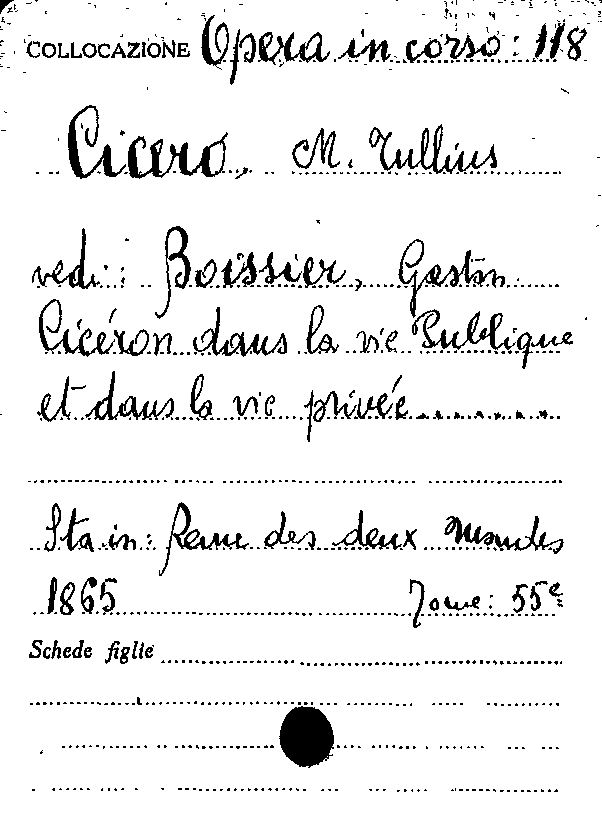 COLLOCAZIONE Opera in corso: 118
Cicero, M. Tullius
vedi: Boissier, Gaston
Cicéron dans la vie Publique
et dans la vie privée.........
Sta in: Revue des deux Mondes
1865 Tome: 55e
Schede figlie